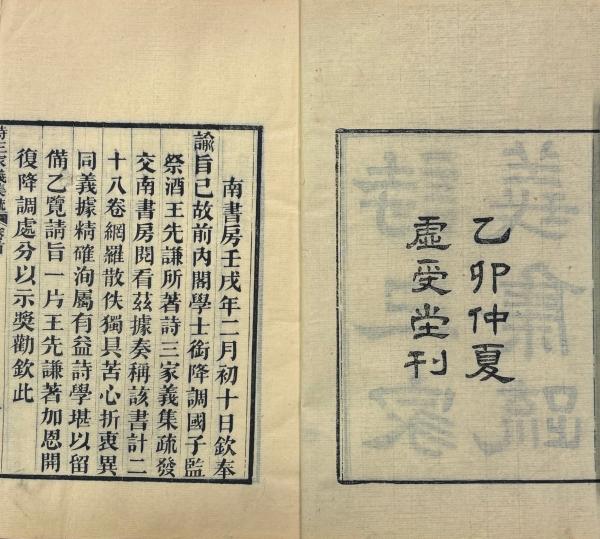 乙卯仲夏
虛受堂刊
南書房壬戌年二月初十日欽奉
諭旨已故前內閣學士銜降調國子監
祭酒王先謙所著詩三家義集疏發
交南書房閱看茲據奏稱該書計二
十八卷網羅散佚獨具苦心折衷異
同義據精確洵屬有益詩學堪以留
備乙覽請旨一片王先謙著加恩開
復降調處分以示獎勸欽此
詩三家義集疏 卷首